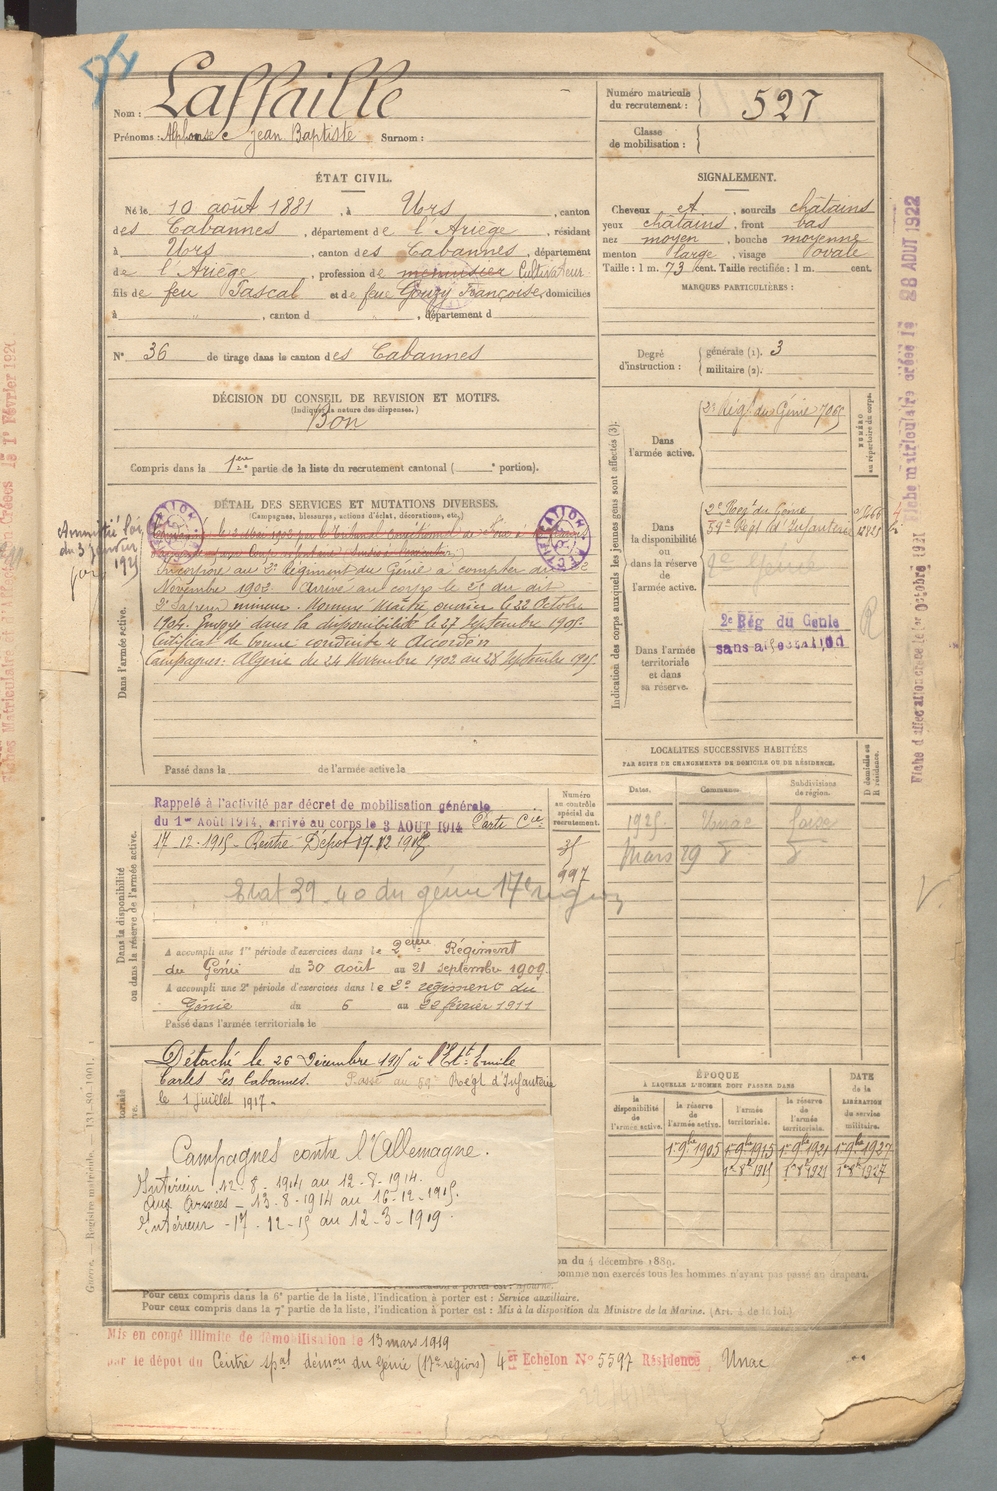 Nom : Laffaille
Prénoms : Alphonse Jean Baptiste Surnom :
Numéro matricule du recrutement : 527
Classe de mobilisation :
ÉTAT CIVIL.
Né le 10 août 1881, à Urs, canton
des Cabannes, département de l'Ariège, résidant
à Urs, canton des Cabannes, département
de l'Ariège, profession de menuisier Cultivateur
fils de feu Pascal et de feue Gouzy Françoise, domiciliés
à , canton d , département d
N° 36 de tirage dans le canton des Cabannes
SIGNALEMENT.
Cheveux et, sourcils châtains
yeux châtains, front bas
nez moyen, bouche moyenne
menton large, visage ovale
Taille : 1 m. 73 cent. Taille rectifiée : 1 m. cent.
MARQUES PARTICULIÈRES :
Degré d'instruction : générale (1). 3
militaire (2).
DÉCISION DU CONSEIL DE REVISION ET MOTIFS.
(Indiquer la nature des dispenses.)
Bon
Compris dans la 1ère partie de la liste du recrutement cantonal ( e portion).
DÉTAIL DES SERVICES ET MUTATIONS DIVERSES.
(Campagnes, blessures, actions d'éclat, décorations, etc.)
Amnistié Loi
du 3 janvier
1925
RECTIFICATION
RECTIFICATION
Dans l'armée active.
Incorporé au 2e Régiment du Génie à compter du
Novembre 1902. Arrivé au corps le 23 du dit
2e Sapeur mineur. Nommé Maître ouvrier le 22 Octobre
1904. Envoyé dans la disponibilité le 27 Septembre 1905.
Certificat de bonne conduite "Accordé"
Campagnes: Algérie du 24 Novembre 1902 au 28 Septembre 1905.
Passé dans la de l'armée active le
Indication des corps auxquels les jeunes gens sont affectés (3):
NUMÉRO au répertoire du corps.
Dans l'armée active.
2e Régt du Génie 7065
Dans la disponibilité ou dans la réserve de l'armée active.
2e Reg du Génie
59e Régt d'Infanterie
Dans l'armée territoriale et dans sa réserve.
2e Rég du Génie
sans affectation
R
Fiche matriculaire créée le 28 AOUT 1922
Fiche d'affectation créée le 1er Octobre 1921
LOCALITES SUCCESSIVES HABITÉES
PAR SUITE DE CHANGEMENTS DE DOMICILE OU DE RÉSIDENCE.
Dates. Communes. Subdivisions de région. D domicile ou R résidence.
1925 Unac Foix
Mars 29 d° d°
Dans la disponibilité ou dans la réserve de l'armée active.
Numéro au contrôle spécial du recrutement.
Rappelé à l'activité par décret de mobilisation générale
du 1er Août 1914, arrivé au corps le 3 AOUT 1914 Parti Cie
17-12-1915 - Rentré Dépôt 19.12 1915
997
Etat 39-40 du génie 17e région
A accompli une 1re période d'exercices dans le 2ème Régiment
du Génie du 30 août au 21 septembre 1909.
A accompli une 2e période d'exercices dans le 2e régiment du
Génie du 6 au 22 février 1911
Passé dans l'armée territoriale le
Détaché le 26 Décembre 1915 à l'Ets Emile
Carles Les Cabannes. Passé au 59e Régt d'Infanterie
le 1 juillet 1917.
Campagnes contre l'Allemagne.
Intérieur 12-8-1914 au 12-8-1914.
Aux Armées - 13-8-1914 au 16-12-1915.
Intérieur - 17-12-15 au 12-3-1919.
ÉPOQUE
À LAQUELLE L'HOMME DOIT PASSER DANS
la disponibilité de l'armée active. la réserve de l'armée active. l'armée territoriale. la réserve de l'armée territoriale.
DATE de la LIBÉRATION du service militaire.
1er 9bre 1905 1er 9bre 1915 1er 9bre 1921 1er 9bre 1927
Guerre. — Registre matricule.
du 4 décembre 1889.
comme non exercés tous les hommes n'ayant pas passé au drapeau.
Pour ceux compris dans la 6e partie de la liste, l'indication à porter est : Service auxiliaire.
Pour ceux compris dans la 7e partie de la liste, l'indication à porter est : Mis à la disposition du Ministre de la Marine.
Mis en congé illimité de démobilisation le 13 mars 1919
par le dépôt du Centre spal démon du Génie (17e région) 4er Echelon N° 5597 Résidence Unac